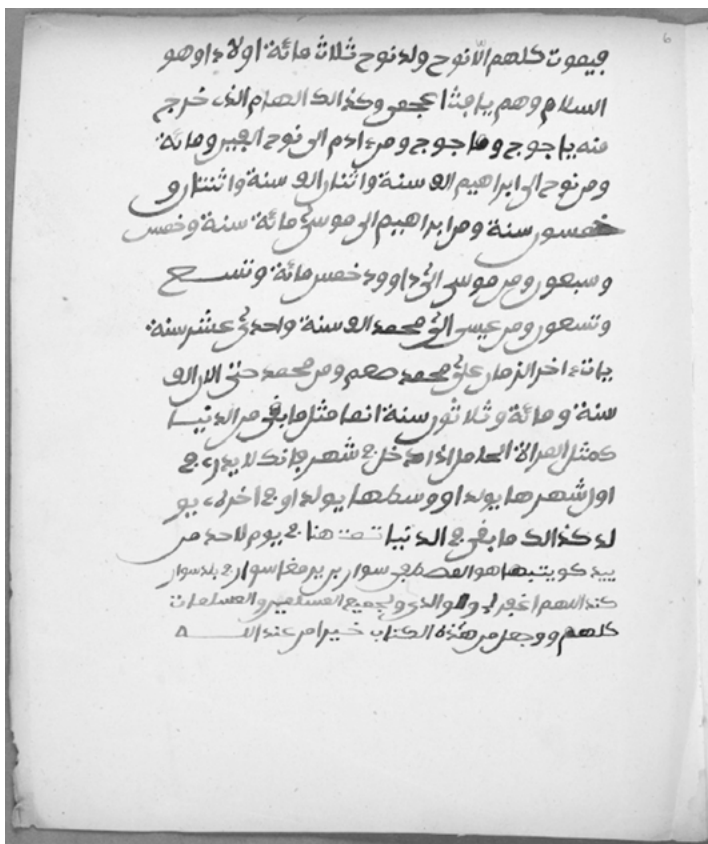 6
فيموت كلهم الّا نوح ولد نوح ثلاث مائة اولاد او هو
السلام وهم يافثا عجمي وكذالك الهام الذي خرج
منه ياجوج وماجوج ومن ءادم الى نوح الفين ومائة
ومن نوح الى ابراهيم الف سنة واثنان الف سنة واثنتان و
خمسون سنة ومن ابراهيم الى موسى مائة سنة وخمس
وسبعون ومن موسى الى داوود خمس مائة وتسع
وتسعون ومن عيسى الى محمد الف سنة واحدى عشر سنة
يات ءاخر الزمان على محمد صعم ومن محمد حتى الان الف
سنة ومائة وثلاثون سنة انما مثل ما بقي من الدنيا
كمثل المراة الحامل اذا دخل في شهر فانك لا يدري في
اول شهرها يولد او وسطها يولد او في اخره يو
لد كذالك ما بقي في الدنيا تمت هنا في يوم لاحد من
هو المصطفى سوار بن سوار في بلد سوار
كند اللهم اغفر لي ولوالدي ولجميع المسلمين والمسلمات
كلهم ووجعل من هذه الكتاب خيرا من عند الله